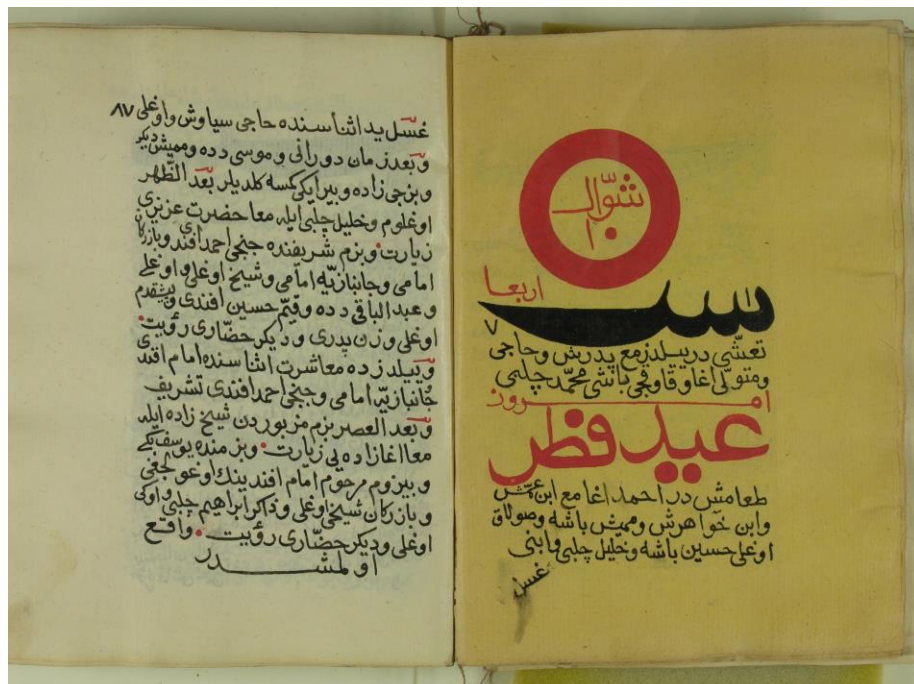 شوّال
اربعا
تعشّی در ییلدز مع پدرش و حاجی
ومتولی اغا و قاوقجی باشی محمّد چلبی
امروز
عید فطر
طعامش در احمد اغا مع ابن عمّش
وابن خواهرش وممیش باشه وصولاق
اوغلی حسین باشه وخلیل چلبی وابنی
غسل
غسل ید اثناسنده حاجی سیاوش واوغلی ٨٧
وبعد زمان دورانی وموسی دده وممیش دیکر
وبزجی زاده وبیر ایکی کسه کلدیلر بعد الظّهر
اوغلوم وخلیل چلبی ایله معا حضرت عزیزی
زیارت وبزم شریفنده جبجی احمد افندی وبازرکان
امامی وجانبازیّه امامی وشیخ اوغلی واوغلی
وعبد الباقی دده وقیّم حسین افندی وپیشقدم
اوغلی وزن پدری ودیکر حضّاری رؤیت
وییلدزده معاشرت اثناسنده امام افندی
جانبازیّه امامی وجبجی احمد افندی تشریف
وبعد العصر بزم مزبوردن شیخ زاده ایله
معا اغازاده یی زیارت وبزمنده یوسف بکی
وبیزوم مرحوم امام افندینك اوغولجغی
وبازرکان شیخی اوغلی وذاکر ابراهیم چلبی واوکی
اوغلی ودیکر حضّاری رؤیت واقع
اولمشدر